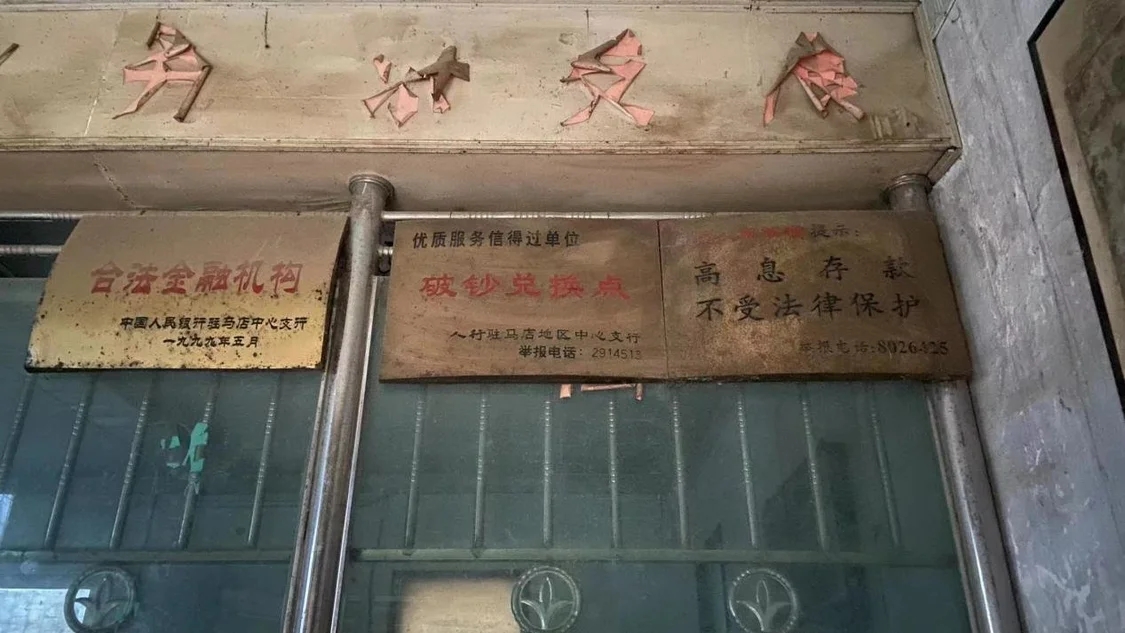 合法金融机构
中国人民银行驻马店中心支行
一九九九年五月
优质服务信得过单位
破钞兑换点
人行驻马店地区中心支行
举报电话：2914513
提示：
高息存款
不受法律保护
举报电话:8026